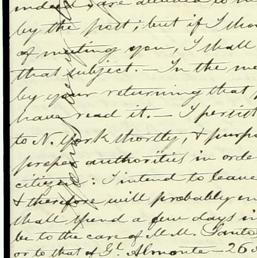 by the post; but if I
of meeting you, I shall
that subject. — In the
by your returning that
have read it. — I persist
to N. York shortly, & purp
proper authorities in orde
citizen: I intend to leave
& therefore will probably
shall spend a few days in
be to the care of M.M.
or to that of Gl. Almonte — 26